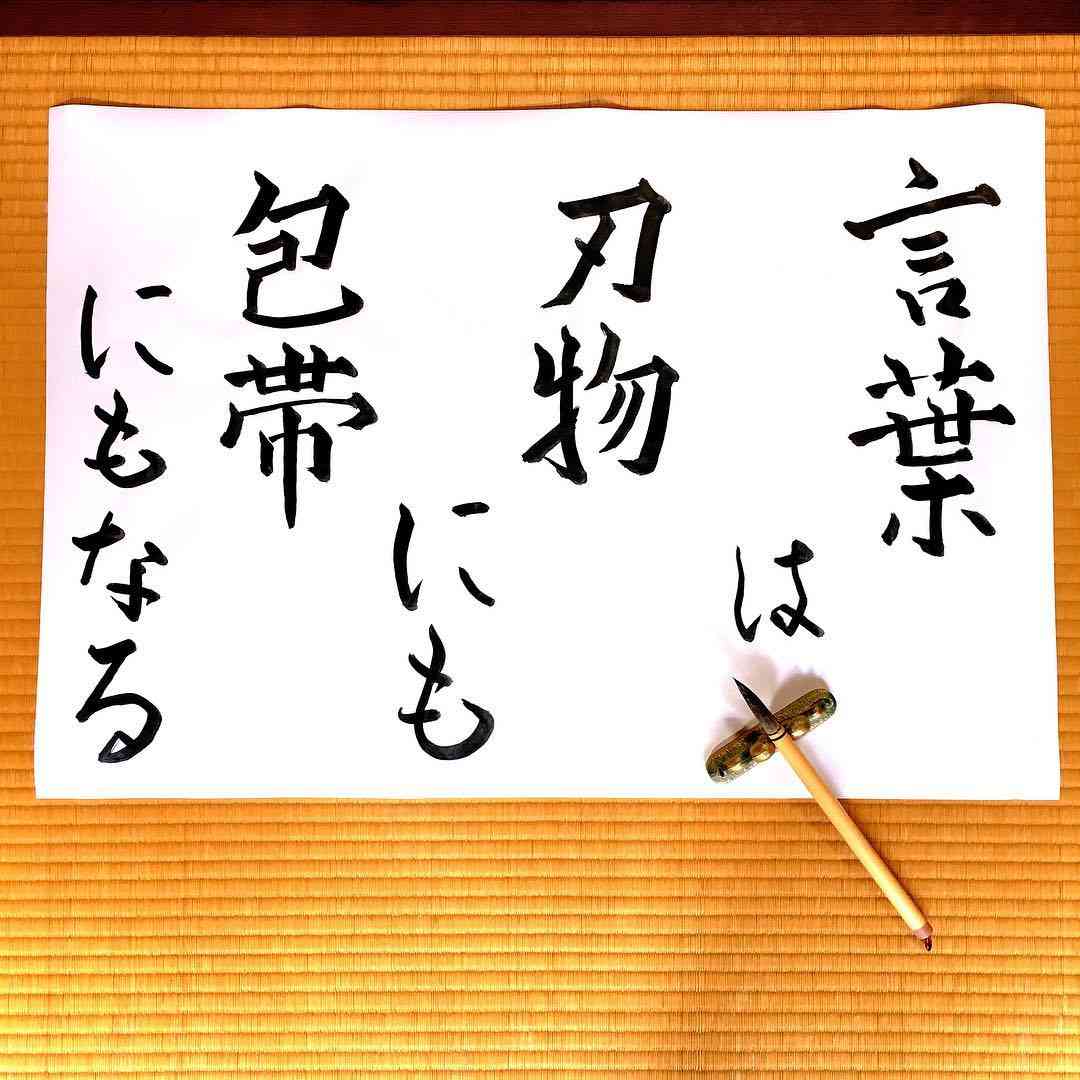 言葉は
刃物にも
包帯にもなる